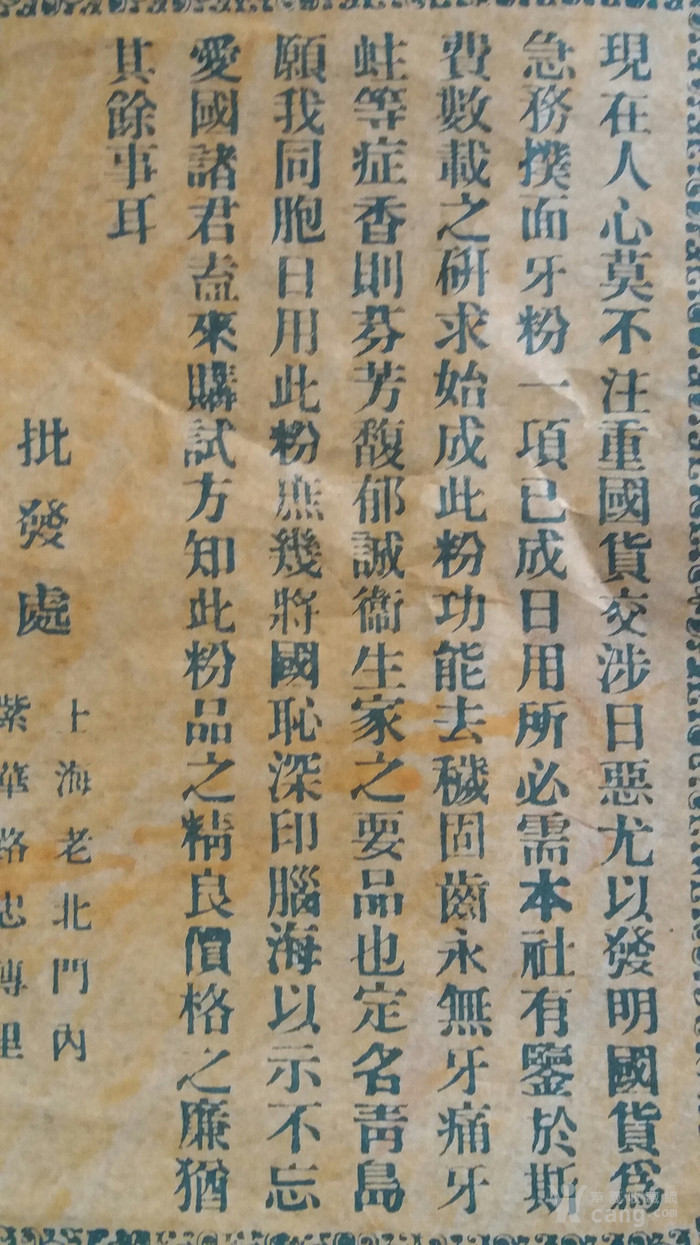 現在人心莫不注重國貨交涉日惡尤以發明國貨爲
急務撲面牙粉一項已成日用所必需本社有鑒於斯
費數載之硏求始成此粉功能去穢固齒永無牙痛牙
蛀等症香則芬芳馥郁誠衞生家之要品也定名靑島
願我同胞日用此粉庶幾將國恥深印腦海以示不忘
愛國諸君盍來購試方知此粉品之精良價格之廉猶
其餘事耳
批發處
上海老北門內
紫華路忠傳里
cang.com